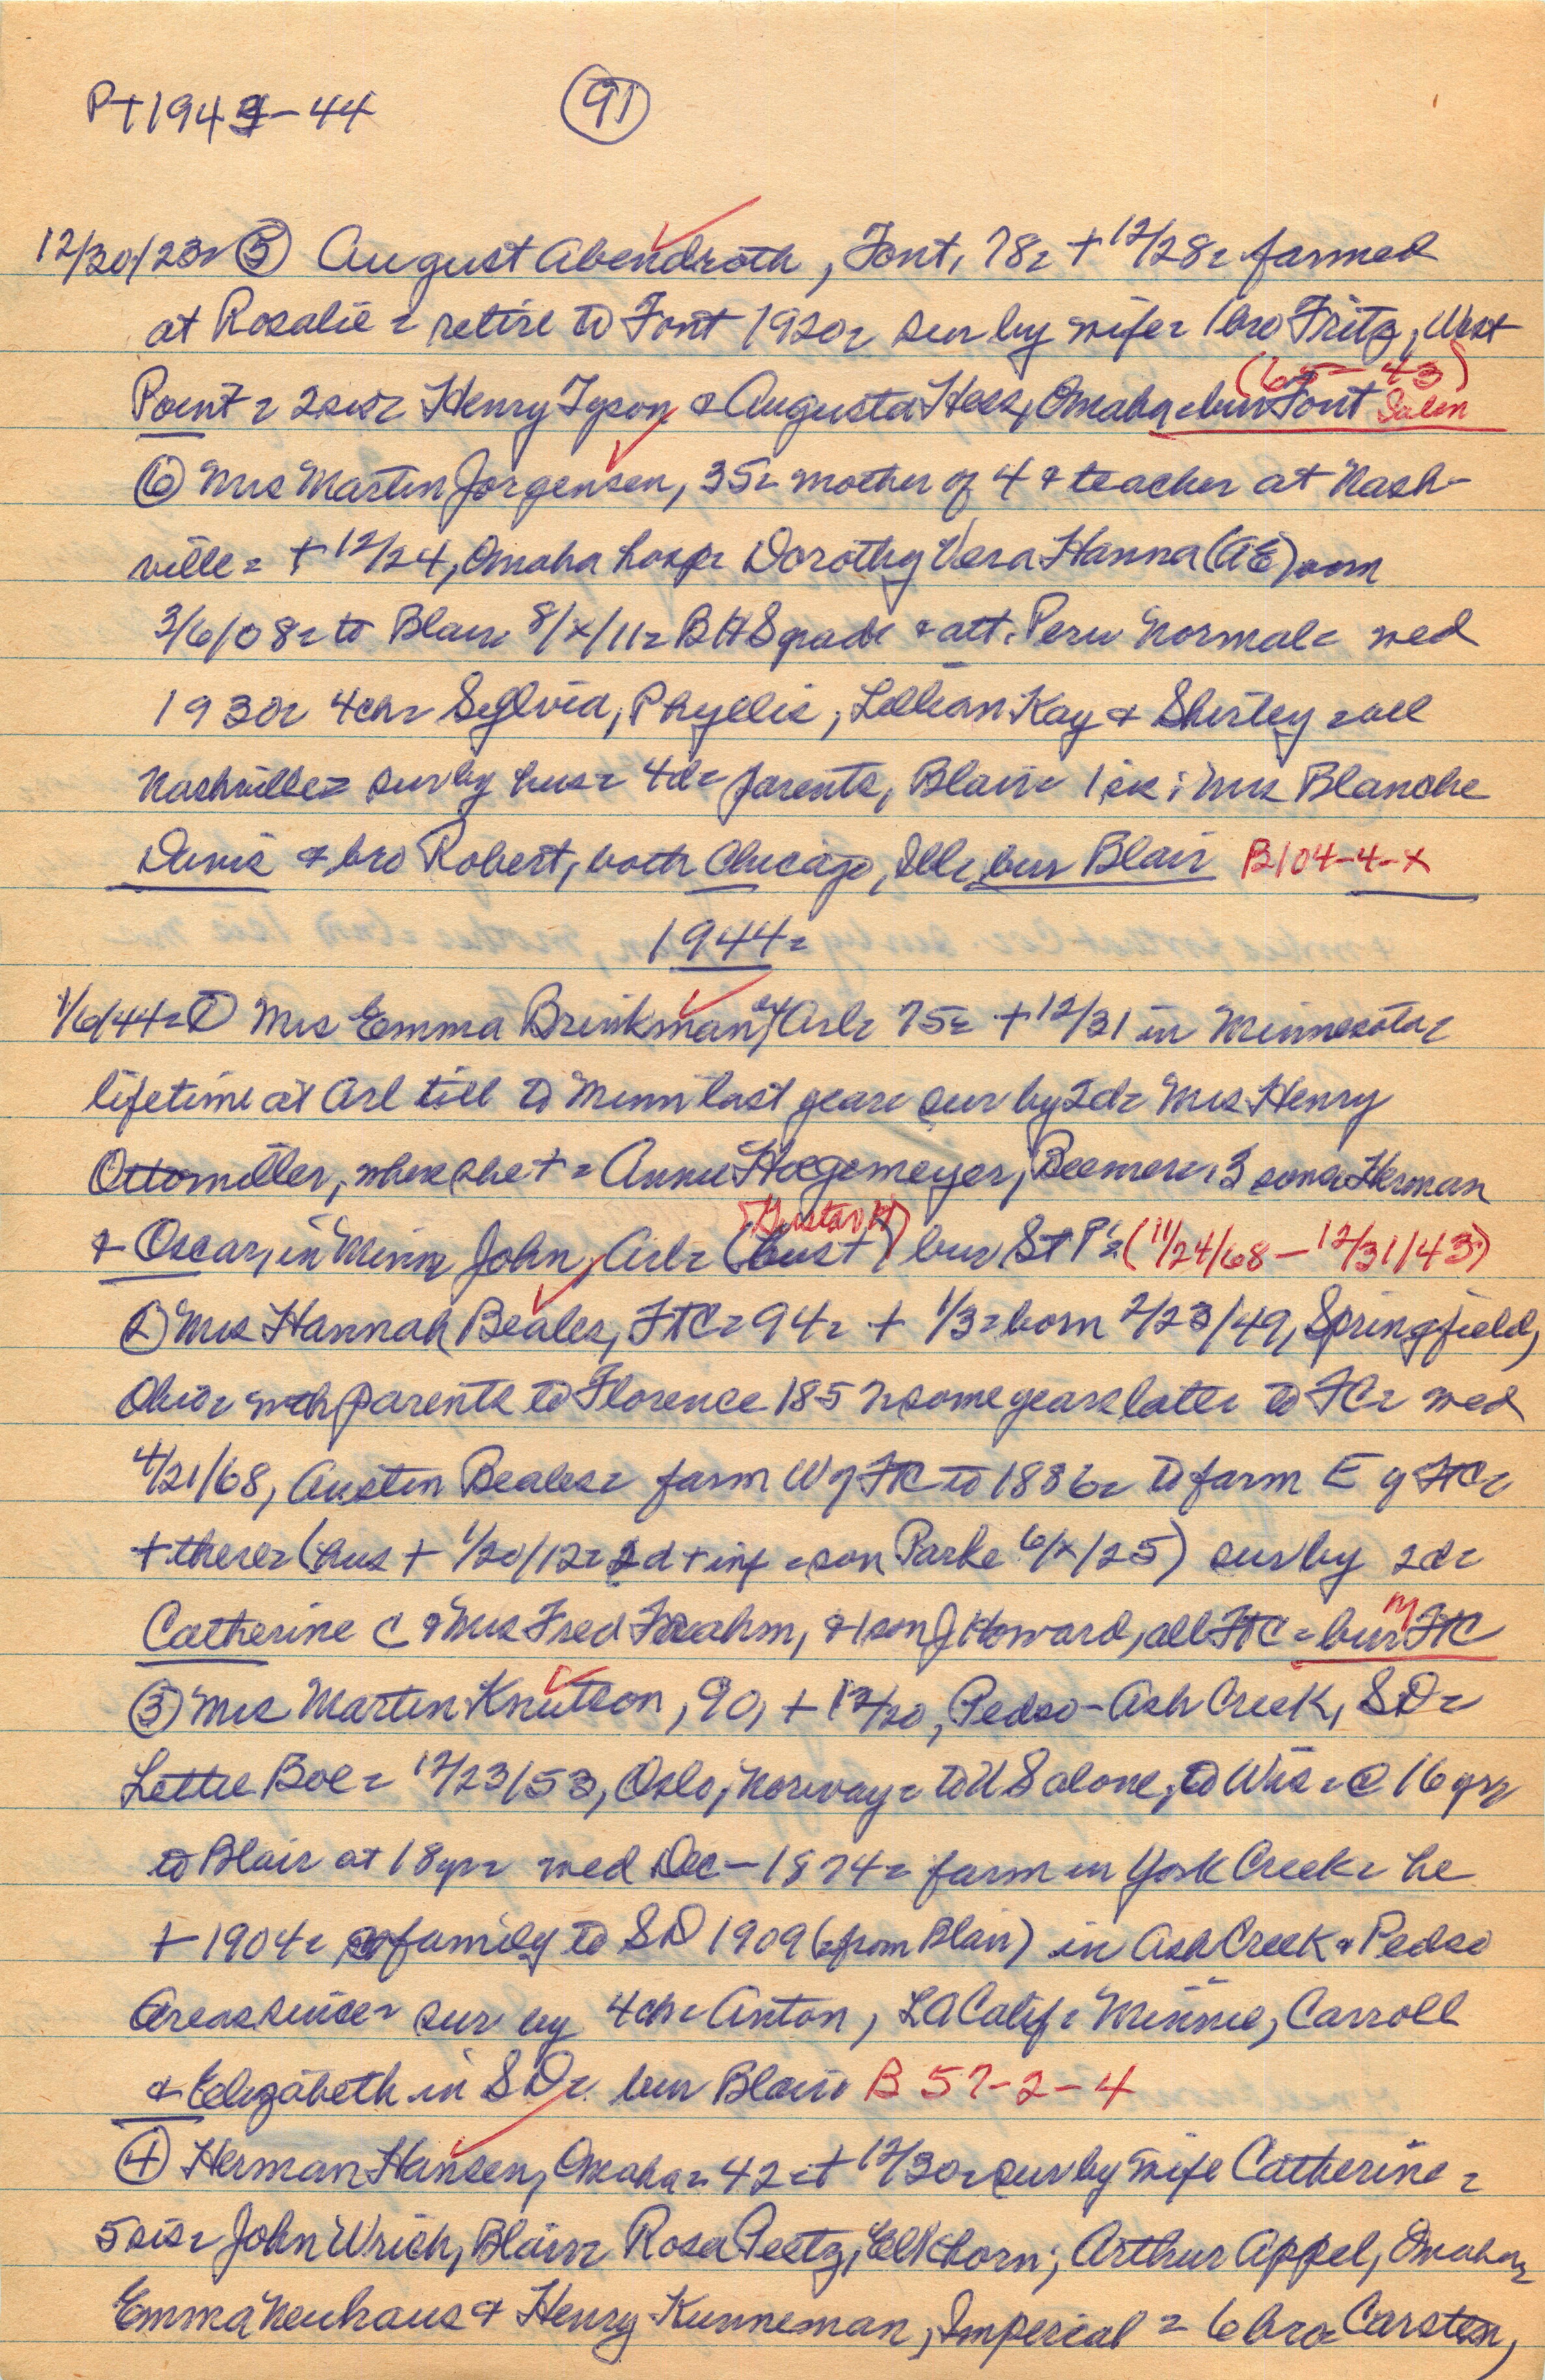 PT 1943-44 (91)
12/30/23= (5) August Abendroth, Font, 78= + 12/28= farmed
at Rosalie = retire to Font 1920= sur by wife= 1 bro Fritz, West
(65-43)
Point = 2 sis= Henry Tyson & Augusta Hess, Omaha = bur Font Salem
(6) Mrs Martin Jorgensen, 35= mother of 4 & teacher at Nash-
ville = + 12/24, Omaha hosp= Dorothy Vera Hanna (AE)
3/6/08= to Blair 8/x/11= BHS grade & att. Peru Normal= wed
1930= 4 ch= Sylvia, Phyllis, Lillian Kay & Shirley = all
Nashville= sur by hus= 4d= parents, Blair= 1 sis; Mrs Blanche
Davis & bro Robert, both Chicago, Ill=, bur Blair B104-4-x
1944=
1/6/44= (1) Mrs Emma Brinkman, ex Arl= 75= + 12/31 in Minnesota=
lifetime at Arl till to Minn last year= sur by 2d= Mrs Henry
Ottomiller, where she + = Anna Hegemeyer, Beemer=, 3 sons= Herman
& Oscar, in Minn John, Arl= (hus +) bur St P's (11/24/68-12/31/43)
(Gustav H)
(2) Mrs Hannah Beales, FtC= 94= + 1/3= born 2/23/49, Springfield,
Ohio= with parents to Florence 185 some years later to FC= wed
4/21/68, Austin Beales= farm W of FtC to 1886= to farm E of FtC=
+ there= (hus + 1/20/12= 2d + inf = son Parke 6/x/25) sur by 2d=
Catherine C & Mrs Fred Frahm, & 1 son J Howard, all FtC = bur FtC
m
(3) Mrs Martin Knutson, 90, + 12/20, Pedro-Ash Creek, SD=
Lettie Boe= 12/23/53, Oslo, Norway= to US alone, to Wis= @ 16 yrs
to Blair at 18 yrs= wed Dec-1874= farm in York Creek= he
+ 1904= family to SD 1909 (= from Blair) in Ash Creek & Pedro
Areas since= sur by 4 ch= Anton, LA Calif= Minnie, Carroll
& Elizabeth in SD= bur Blair= B 57-2-4
(4) Herman Hansen, Omaha= 42= + 12/30= sur by wife Catherine=
5 sis= John Wrich, Blair= Rosa Peetz, Elkhorn; Arthur Appel, Omaha=
Emma Neuhaus & Henry Kunneman, Imperial = 6 bro= Carsten,